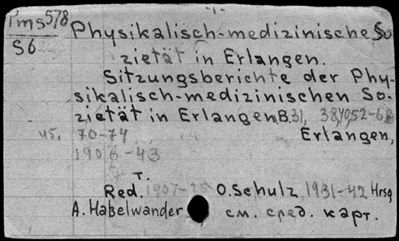 Tms578
S6
Physikalisch-medizinische So-
zietät in Erlangen.
Sitzungsberichte der Phy-
sikalisch-medizinischen So-
zietät in Erlangen B. 31, 38, 40, 52-68
70-74 Erlangen,
1906-43
T.
Red. 1907-25 O. Schulz, 1931-42 Hrsg
A. Habelwander см. сред. карт.